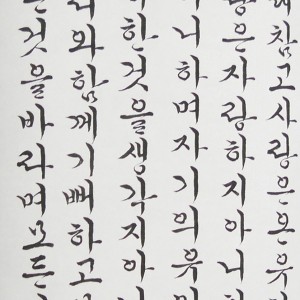 래참고사랑은온유
랑은자랑하지아니하
니하며자기의유
한것을생각지아
리와함께기뻐하고
것을바라며모든